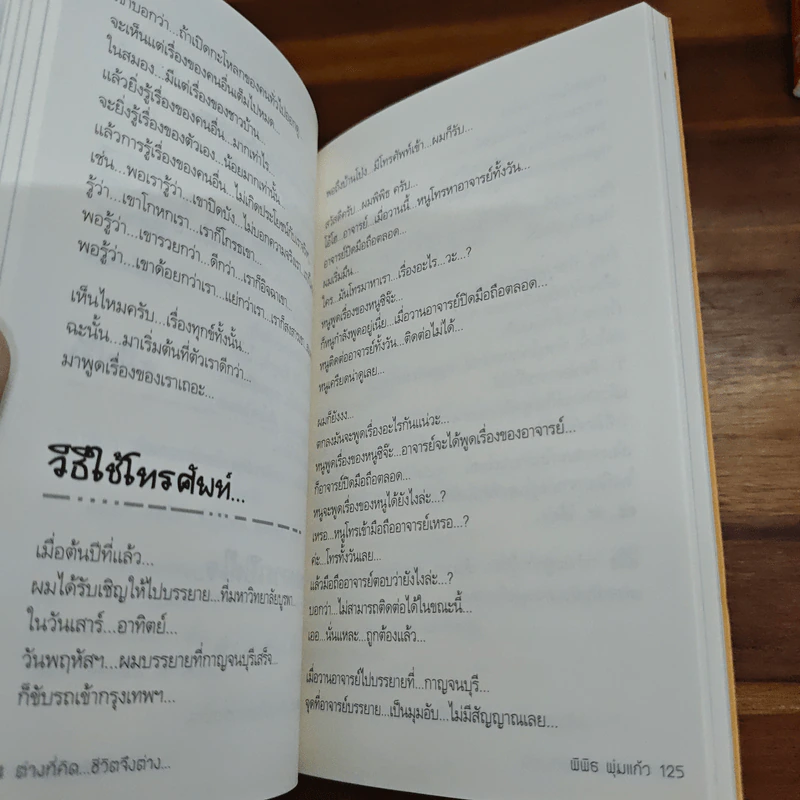 เขาบอกว่า...ถ้าเปิดกะโหลกของคนทั่วไปออกดู
จะเห็นแต่เรื่องของคนอื่นเต็มไปหมด...
ในสมอง...มีแต่เรื่องของชาวบ้าน...
แล้วยิ่งรู้เรื่องของคนอื่น...มากเท่าไร...
จะยิ่งรู้เรื่องของตัวเอง...น้อยมากเท่านั้น...
แล้วการรู้เรื่องของคนอื่น...ไม่เกิดประโยชน์กับเรา
เช่น...พอเรารู้ว่า...เขาปิดบัง...ไม่บอกความจริงเรา...
รู้ว่า...เขาโกหกเรา...เราก็โกรธเขา...
พอรู้ว่า...เขารวยกว่า...ดีกว่า...เราก็อิจฉาเขา...
พอรู้ว่า...เขาด้อยกว่าเรา...แย่กว่าเรา...เราก็
เห็นไหมครับ...เรื่องทุกข์ทั้งนั้น...
ฉะนั้น...มาเริ่มต้นที่ตัวเราดีกว่า...
มาพูดเรื่องของเราเถอะ...
วิธีใช้โทรศัพท์...
เมื่อต้นปีที่แล้ว...
ผมได้รับเชิญให้ไปบรรยาย...ที่มหาวิทยาลัยบูรพา...
ในวันเสาร์...อาทิตย์...
วันพฤหัสฯ...ผมบรรยายที่กาญจนบุรีเสร็จ...
ก็ขับรถเข้ากรุงเทพฯ...
ต่างที่คิด...ชีวิตจึงต่าง...
พอถึงบ้านโป่ง...มีโทรศัพท์เข้า...ผมก็รับ...
สวัสดีครับ...ผมพิพิธ ครับ...
โอ้โฮ...อาจารย์...เมื่อวานนี้...หนูโทรหาอาจารย์ทั้งวัน...
อาจารย์ปิดมือถือตลอด...
ผมเริ่มมึน...
ใคร...มันโทรมาหาเรา...เรื่องอะไร...วะ...?
หนูพูดเรื่องของหนูซิจ๊ะ...
ก็หนูกำลังพูดอยู่เนี่ย...เมื่อวานอาจารย์ปิดมือถือตลอด...
หนูติดต่ออาจารย์ทั้งวัน...ติดต่อไม่ได้...
หนูเครียดน่าดูเลย...
ผมก็ยังงง...
ตกลงมันจะพูดเรื่องอะไรกันแน่วะ...
หนูพูดเรื่องของหนูซิจ๊ะ...อาจารย์จะได้พูดเรื่องของอาจารย์...
ก็อาจารย์ปิดมือถือตลอด...
หนูจะพูดเรื่องของหนูได้ยังไงล่ะ...?
เหรอ...หนูโทรเข้ามือถืออาจารย์เหรอ...?
ค่ะ...โทรทั้งวันเลย...
แล้วมือถืออาจารย์ตอบว่ายังไงล่ะ...?
บอกว่า...ไม่สามารถติดต่อได้ในขณะนี้...
เออ...นั่นแหละ...ถูกต้องแล้ว...
เมื่อวานอาจารย์ไปบรรยายที่...กาญจนบุรี...
จุดที่อาจารย์บรรยาย...เป็นมุมอับ...ไม่มีสัญญาณเลย...
พิพิธ พุ่มแก้ว 125